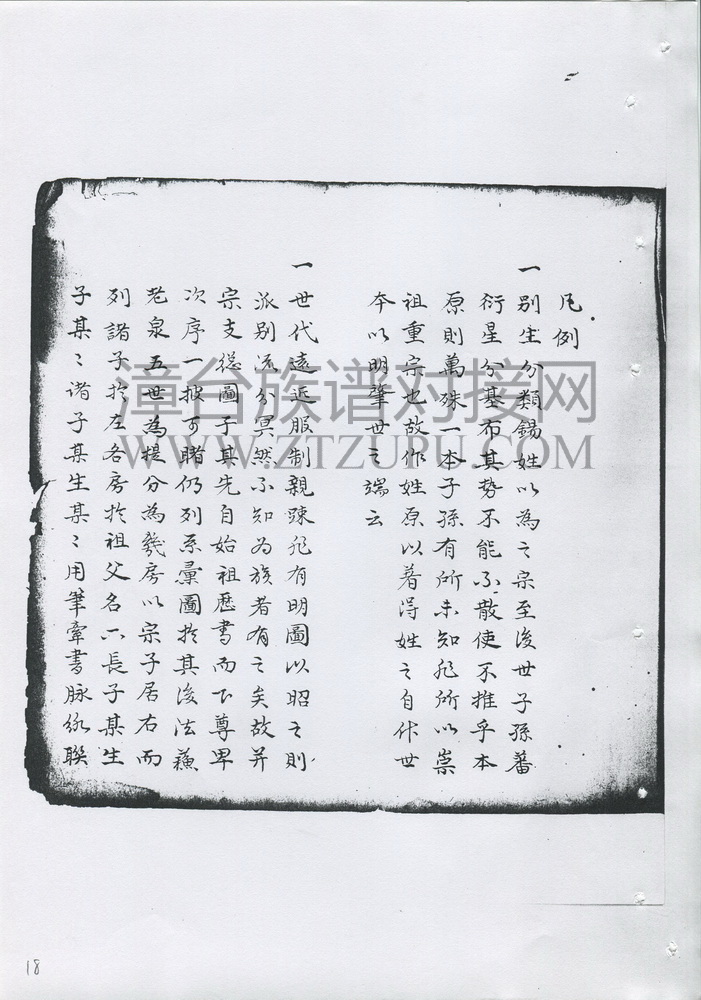 凡例
一別生分類錫姓以為之宗至後世子孫蕃
衍星分棊布其勢不能不散使不推乎本
原則萬殊一本子孫有所未知非所以崇
祖重宗也故作姓原以著得姓之自作世
本以明肇世之端云
一世代遠近服制親踈非有明圖以昭之則
派別流分冥然不知為族者有之矣故并
宗支總圖子其先自始祖歷書而下尊卑
次序一披可睹仍列系彙圖於其後法蘓
老泉五世為提分為幾房以宗子居右而
列諸子於左各房於祖父名下長子某生
子某〻諸子某生某〻用筆牽書脉絡聯
漳台族谱对接网
WWW.ZTZUPU.COM
18